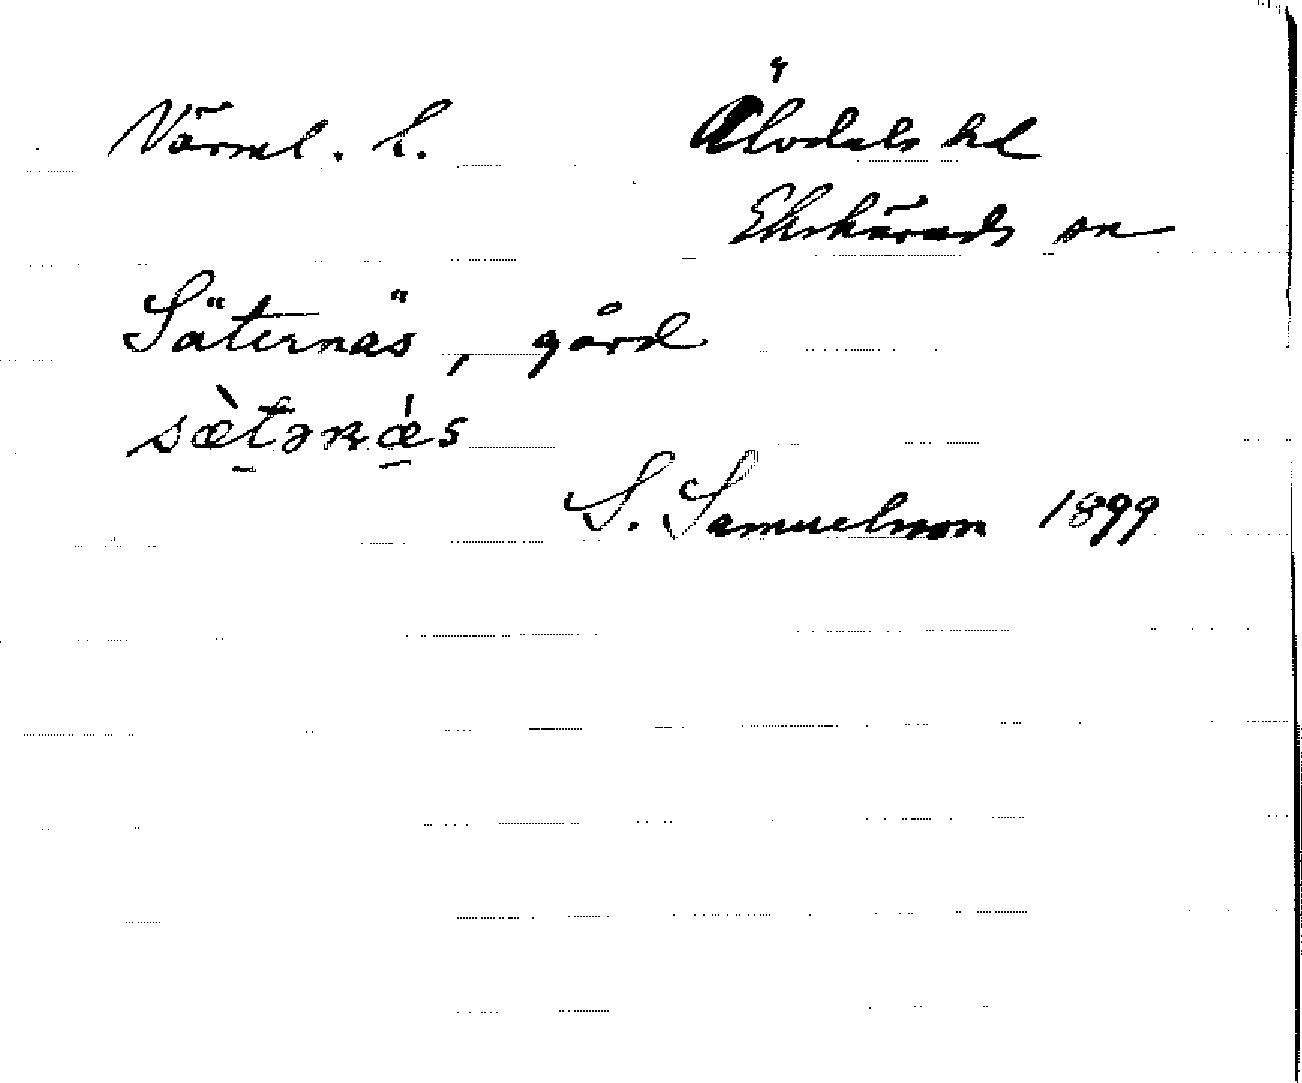 Värml. l. Älvdals hd
Ekshärads sn
Säternäs, gård
sæ̀tərnǽs
S. Samuelsson 1899